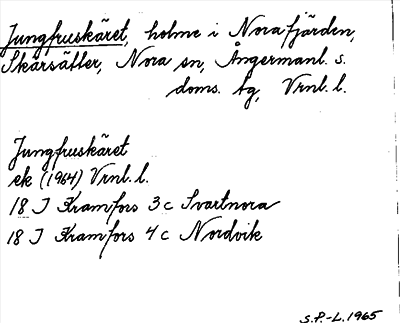 Jungfruskäret, holme i Norafjärden,
Skärsätter, Nora sn, Ångermanl. s.
doms. tg, Vrnl. l.
Jungfruskäret
ek (1964) Vrnl. l.
18 I Kramfors 3 c Svartnora
18 I Kramfors 4 c Nordvik
S.P.-L. 1965